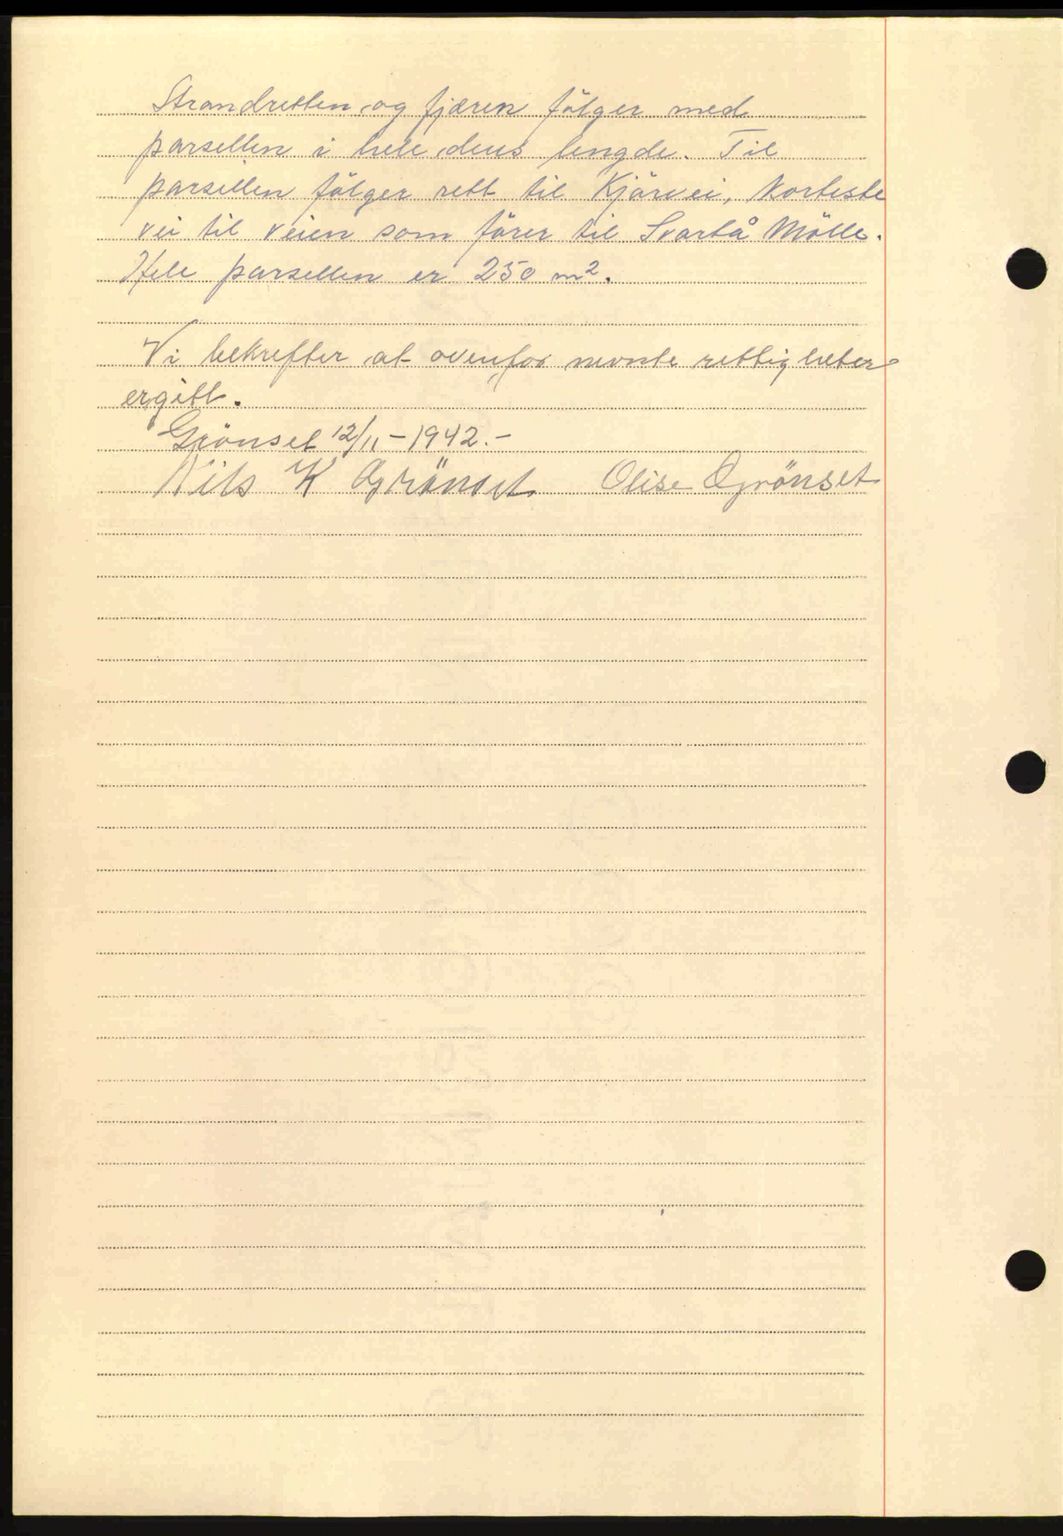 Strandretten og fjæren fölger med
parsellen i hele dens lengde. Til
parsellen fölger rett til Kjörvei, korteste
vei til veien som förer til Svartå Mölle.
Hele parsellen er 250 m².
Vi bekrefter at ovenfor nevnte rettigheter
er gitt.
Grönset 12/11 – 1942. –
Nils K Grönset Olise Grönset